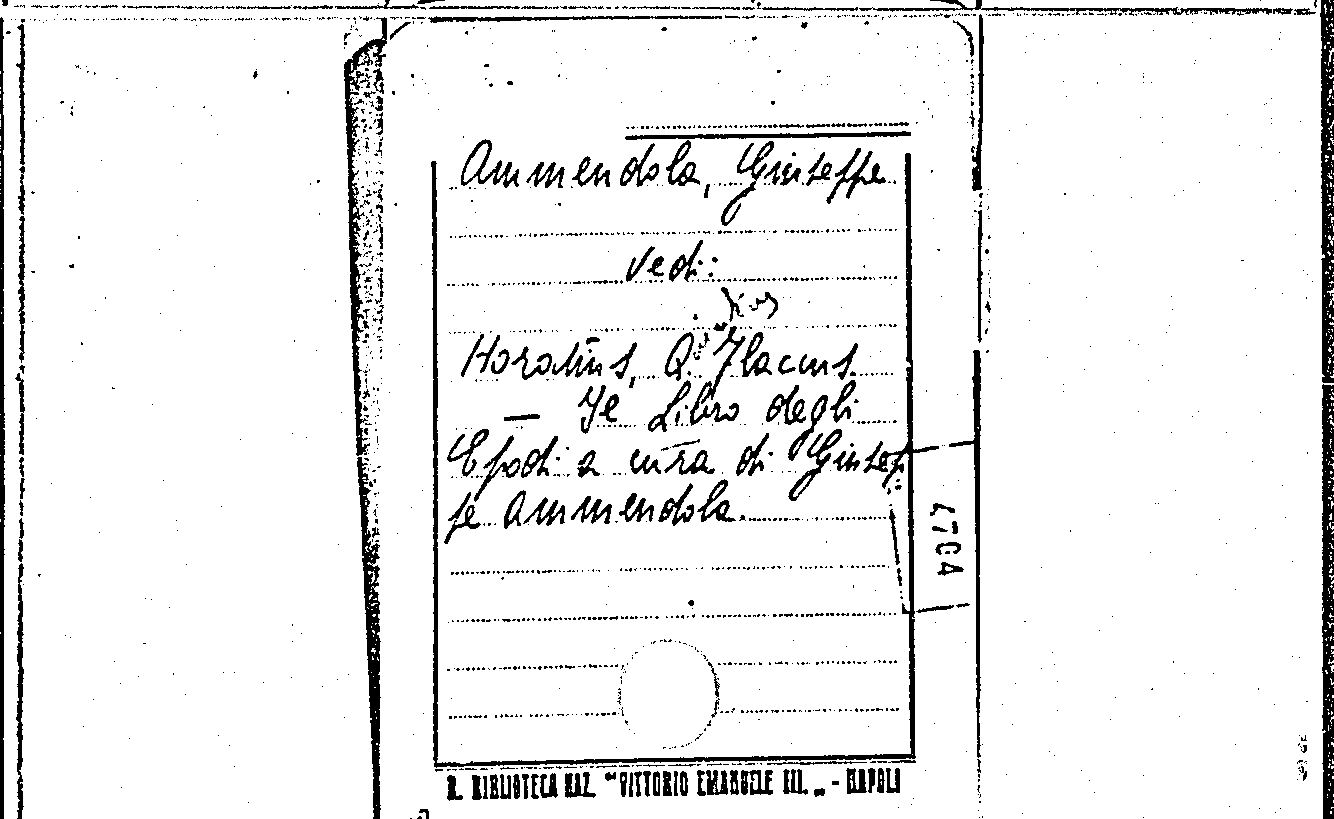 Ammendola, Giuseppe
vedi:
Horatius, Q. Flaccus.
— Il Libro degli
Epodi a cura di Giusep
pe Ammendola.
4704
R. BIBLIOTECA NAZ. "VITTORIO EMANUELE III. „ - NAPOLI